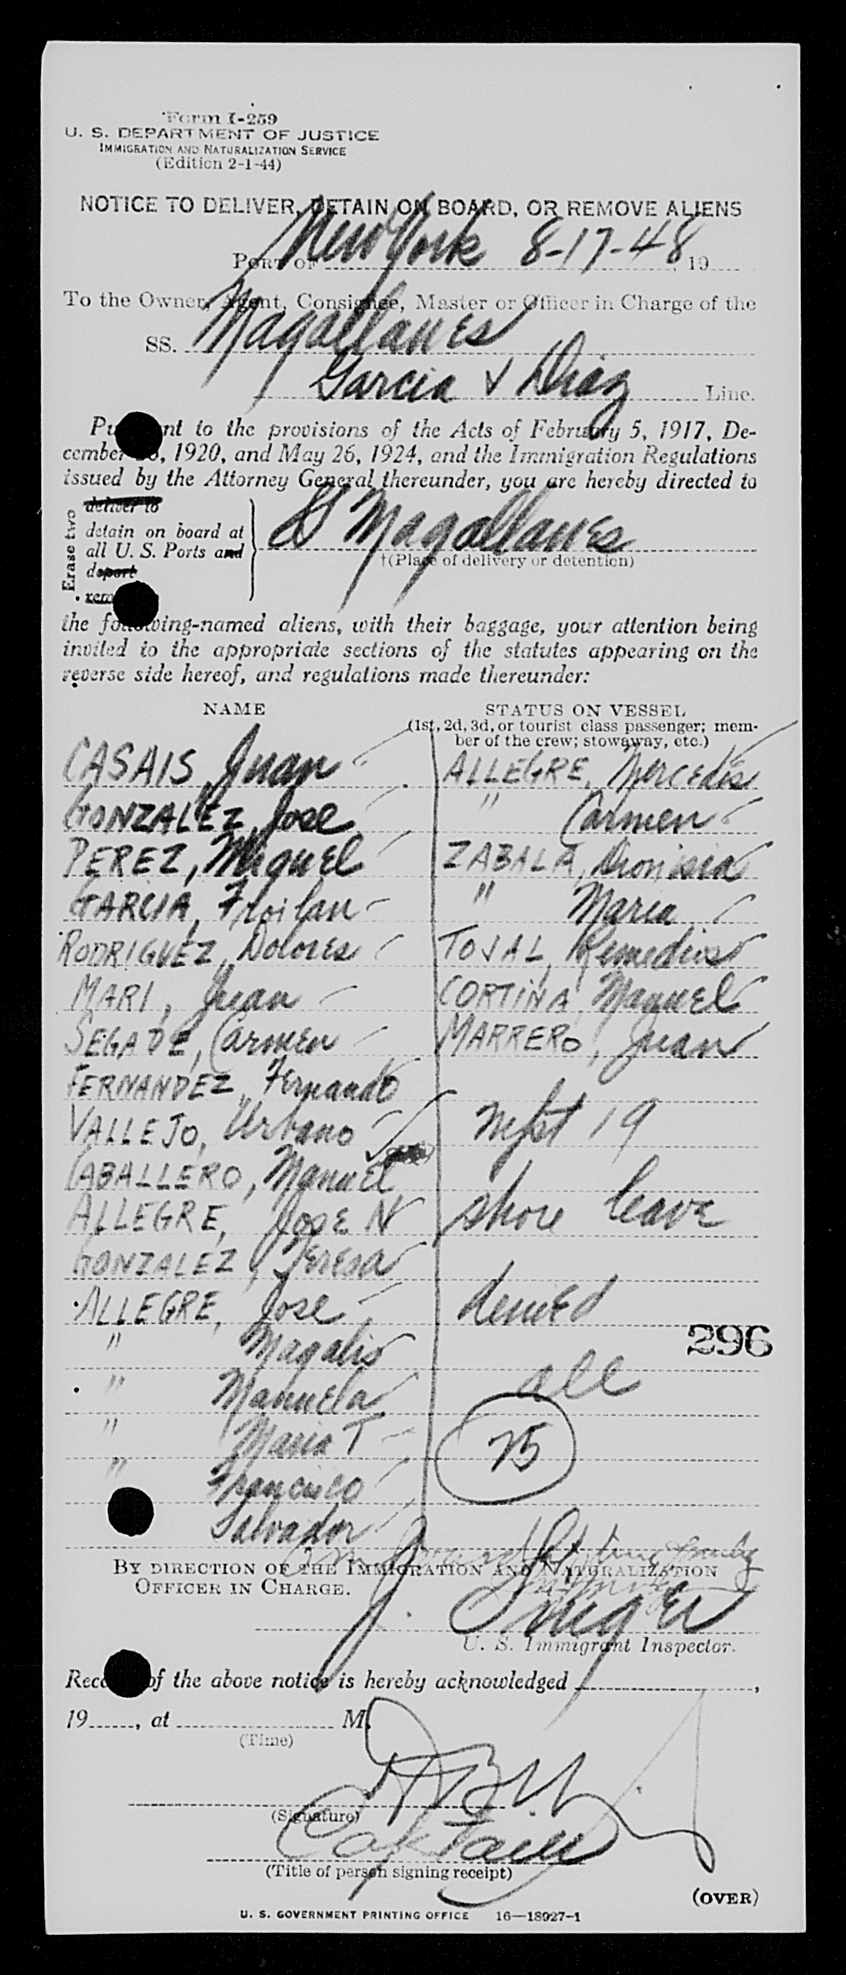 Form I-259
U. S. DEPARTMENT OF JUSTICE
IMMIGRATION AND NATURALIZATION SERVICE
(Edition 2-1-44)
NOTICE TO DELIVER, DETAIN ON BOARD, OR REMOVE ALIENS
PORT OF New York 8-17-48 19
To the Owner, Agent, Consignee, Master or Officer in Charge of the
SS. Magallanes
Garcia & Diaz Line.
Pursuant to the provisions of the Acts of February 5, 1917, De-
cember , 1920, and May 26, 1924, and the Immigration Regulations
issued by the Attorney General thereunder, you are hereby directed to
Erase two
deliver to
detain on board at
all U. S. Ports and
deport
SS Magallanes
†(Place of delivery or detention)
the following-named aliens, with their baggage, your attention being
invited to the appropriate sections of the statutes appearing on the
reverse side hereof, and regulations made thereunder:
NAME
CASAIS, Juan
GONZALEZ, Jose
PEREZ, Miguel
GARCIA, Froilan
RODRIGUEZ, Dolores
MARI, Juan
SEGADE, Carmen
FERNANDEZ, Fernando
VALLEJO, Urbano
CABALLERO, Manuel
ALLEGRE, Jose N
GONZALEZ, Teresa
ALLEGRE, Jose
" Magalis
" Manuela
" Maria T
" Francisco
Salvador
STATUS ON VESSEL
(1st, 2d, 3d, or tourist class passenger; mem-
ber of the crew; stowaway, etc.)
ALLEGRE, Mercedes
" Carmen
ZABALA, Dionisia
" Maria
TOJAL, Remedios
CORTINA, Manuel
MARRERO, Juan
Mfst 19
shore leave
denied
296
all
25
BY DIRECTION OF THE IMMIGRATION AND NATURALIZATION
OFFICER IN CHARGE.
J.
U. S. Immigrant Inspector.
Receipt of the above notice is hereby acknowledged ,
19 , at M.
(Time)
(Signature)
Captain
(Title of person signing receipt)
(OVER)
U. S. GOVERNMENT PRINTING OFFICE 16—18927-1